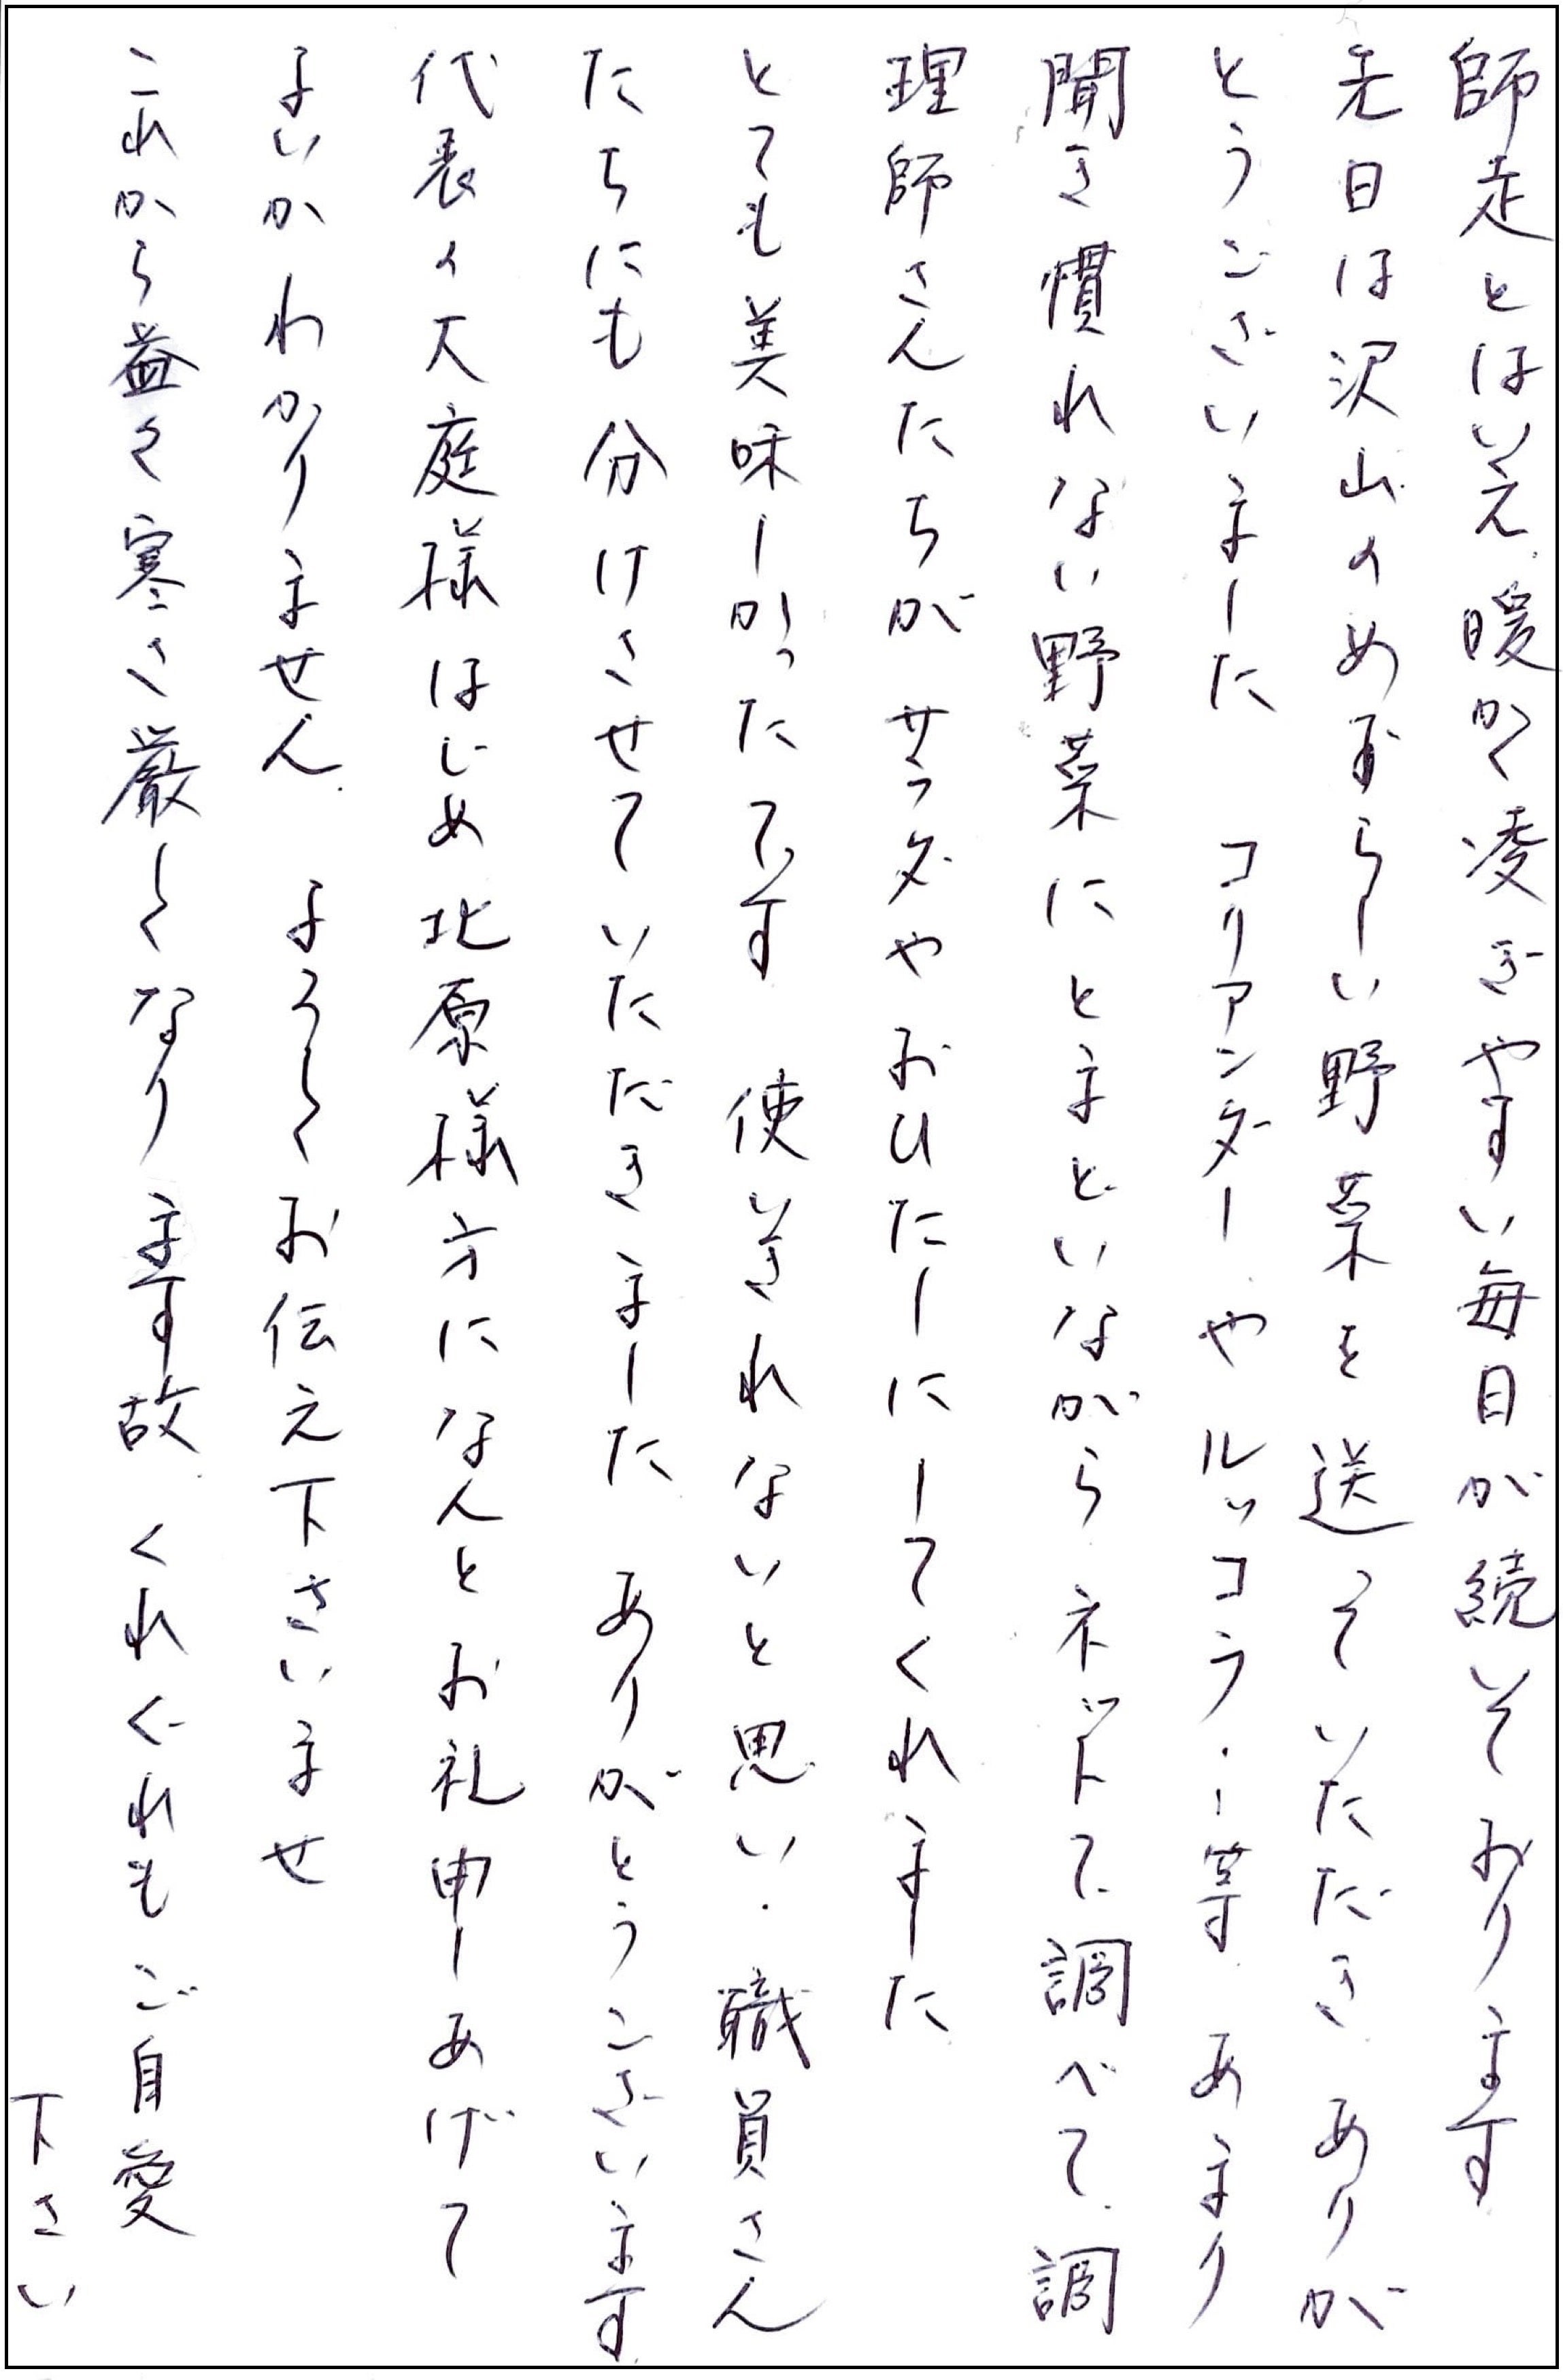 師走とはいえ暖かく凌ぎやすい毎日が続いております
先日は沢山のめずらしい野菜を送っていただき ありが
とうございました コリアンダーや ルッコラ・・等 あまり
聞き慣れない野菜に とまどいながら ネットで調べて 調
理師さんたちが サラダや おひたしにしてくれました
とても美味しかったです 使いきれないと思い、職員さん
たちにも分けさせていただきました ありがとうございます
代表の大庭様はじめ北原様方になんとお礼申しあげて
よいかわかりません よろしくお伝え下さいませ
これから益々寒さ厳しくなります故 くれぐれもご自愛
下さい